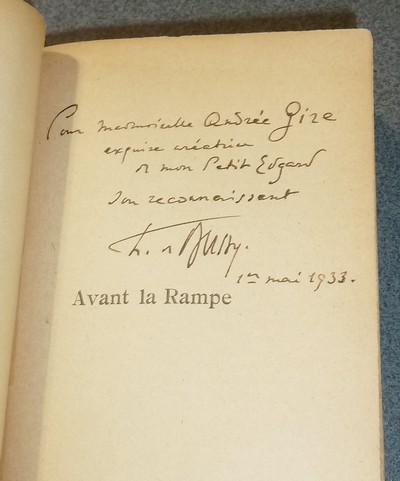 Pour Mademoiselle Andrée Gire
exquise créatrice
de mon Petit Edgard
son reconnaissant
de Bussy.
1er mai 1933.
Avant la Rampe